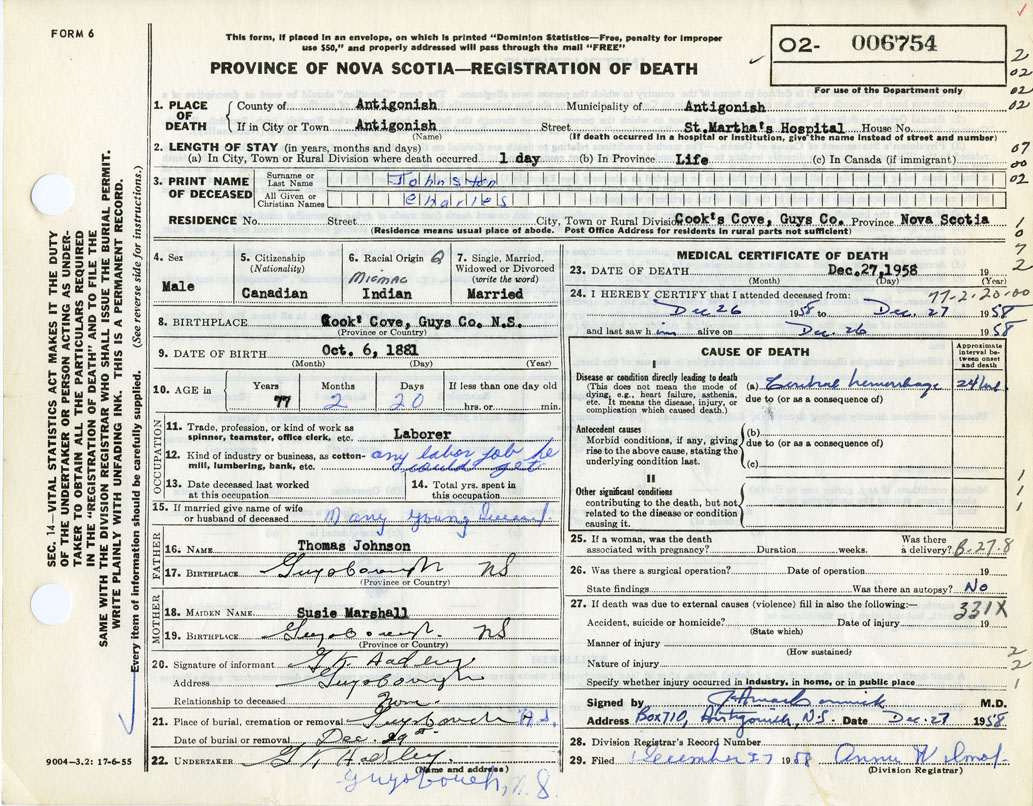 FORM 6
This form, if placed in an envelope, on which is printed "Dominion Statistics—Free, penalty for improper
use $50," and properly addressed will pass through the mail "FREE"
O2- 006754
For use of the Department only
PROVINCE OF NOVA SCOTIA—REGISTRATION OF DEATH
2
02
02
02
07
00
02
1
0
7
2
SEC. 14—VITAL STATISTICS ACT MAKES IT THE DUTY
OF THE UNDERTAKER OR PERSON ACTING AS UNDER-
TAKER TO OBTAIN ALL THE PARTICULARS REQUIRED
IN THE "REGISTRATION OF DEATH" AND TO FILE THE
SAME WITH THE DIVISION REGISTRAR WHO SHALL ISSUE THE BURIAL PERMIT.
WRITE PLAINLY WITH UNFADING INK. THIS IS A PERMANENT RECORD.
Every item of information should be carefully supplied. (See reverse side for instructions.)
1. PLACE OF DEATH
County of Antigonish Municipality of Antigonish
If in City or Town Antigonish Street St.Martha's Hospital House No.
(Name) (If death occurred in a hospital or institution, give the name instead of street and number)
2. LENGTH OF STAY (in years, months and days)
(a) In City, Town or Rural Division where death occurred 1 day (b) In Province Life (c) In Canada (if immigrant)
3. PRINT NAME OF DECEASED
Surname or Last Name Johnston
All Given or Christian Names Charles
RESIDENCE No. Street City, Town or Rural Division Cook's Cove, Guys Co. Province Nova Scotia
(Residence means usual place of abode. Post Office Address for residents in rural parts not sufficient)
4. Sex
Male
5. Citizenship
(Nationality)
Canadian
6. Racial Origin
Micmac
Indian
7. Single, Married,
Widowed or Divorced
(write the word)
Married
8. BIRTHPLACE Cook' Cove, Guys Co. N.S.
(Province or Country)
9. DATE OF BIRTH Oct. 6, 1881
(Month) (Day) (Year)
10. AGE in
Years Months Days If less than one day old
77 2 20 hrs. or min.
OCCUPATION
11. Trade, profession, or kind of work as
spinner, teamster, office clerk, etc. Laborer
12. Kind of industry or business, as cotton-
mill, lumbering, bank, etc. any labor job he
could get
13. Date deceased last worked
at this occupation
14. Total yrs. spent in
this occupation
15. If married give name of wife
or husband of deceased Mary Young
FATHER
16. NAME Thomas Johnson
17. BIRTHPLACE Guysborough NS
(Province or Country)
MOTHER
18. MAIDEN NAME Susie Marshall
19. BIRTHPLACE Guysborough. NS
(Province or Country)
20. Signature of informant
Address Guysborough
Relationship to deceased None
21. Place of burial, cremation or removal Guysborough N.S.
Date of burial or removal Dec. 29
22. UNDERTAKER
(Name and address)
Guysborough, N.S.
9004—3.2: 17-6-55
MEDICAL CERTIFICATE OF DEATH
23. DATE OF DEATH Dec.27,1958 19
(Month) (Day) (Year)
24. I HEREBY CERTIFY that I attended deceased from: 77-2-20-00
Dec 26 1958 to Dec. 27 1958
and last saw him alive on Dec. 26 1958
CAUSE OF DEATH
Approximate
interval be-
tween onset
and death
I
Disease or condition directly leading to death
(This does not mean the mode of
dying, e.g., heart failure, asthenia,
etc. It means the disease, injury, or
complication which caused death.)
(a) Cerebral hemorrhage
due to (or as a consequence of)
Antecedent causes
Morbid conditions, if any, giving
rise to the above cause, stating the
underlying condition last.
(b)
due to (or as a consequence of)
(c)
II
Other significant conditions
contributing to the death, but not
related to the disease or condition
causing it.
1
1
1
25. If a woman, was the death
associated with pregnancy? Duration weeks.
Was there
a delivery? B-27-8
26. Was there a surgical operation? Date of operation 19
State findings Was there an autopsy? No
27. If death was due to external causes (violence) fill in also the following:— 331X
Accident, suicide or homicide? Date of injury 19
(State which)
Manner of injury
(How sustained)
Nature of injury
Specify whether injury occurred in industry, in home, or in public place
2
2
1
Signed by M.D.
Address Box 710, Antigonish, N.S. Date Dec. 27 1958
28. Division Registrar's Record Number
29. Filed December 27 1958 Annie
(Division Registrar)